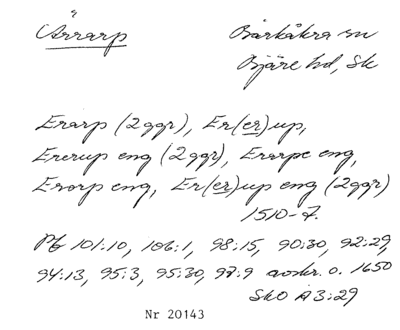 Ärrarp
Barkåkra sn
Bjäre hd, Sk
Erarp (2ggr), Er(er)up,
Ererup eng (2ggr), Erarpe eng,
Erorp eng, Er(er)up eng (2ggr)
1510-7.
101:10, 106:1, 98:15, 90:30, 92:29,
94:13, 95:3, 95:30, 97:9 avskr. o. 1650
SkO A3:29
Nr 20143